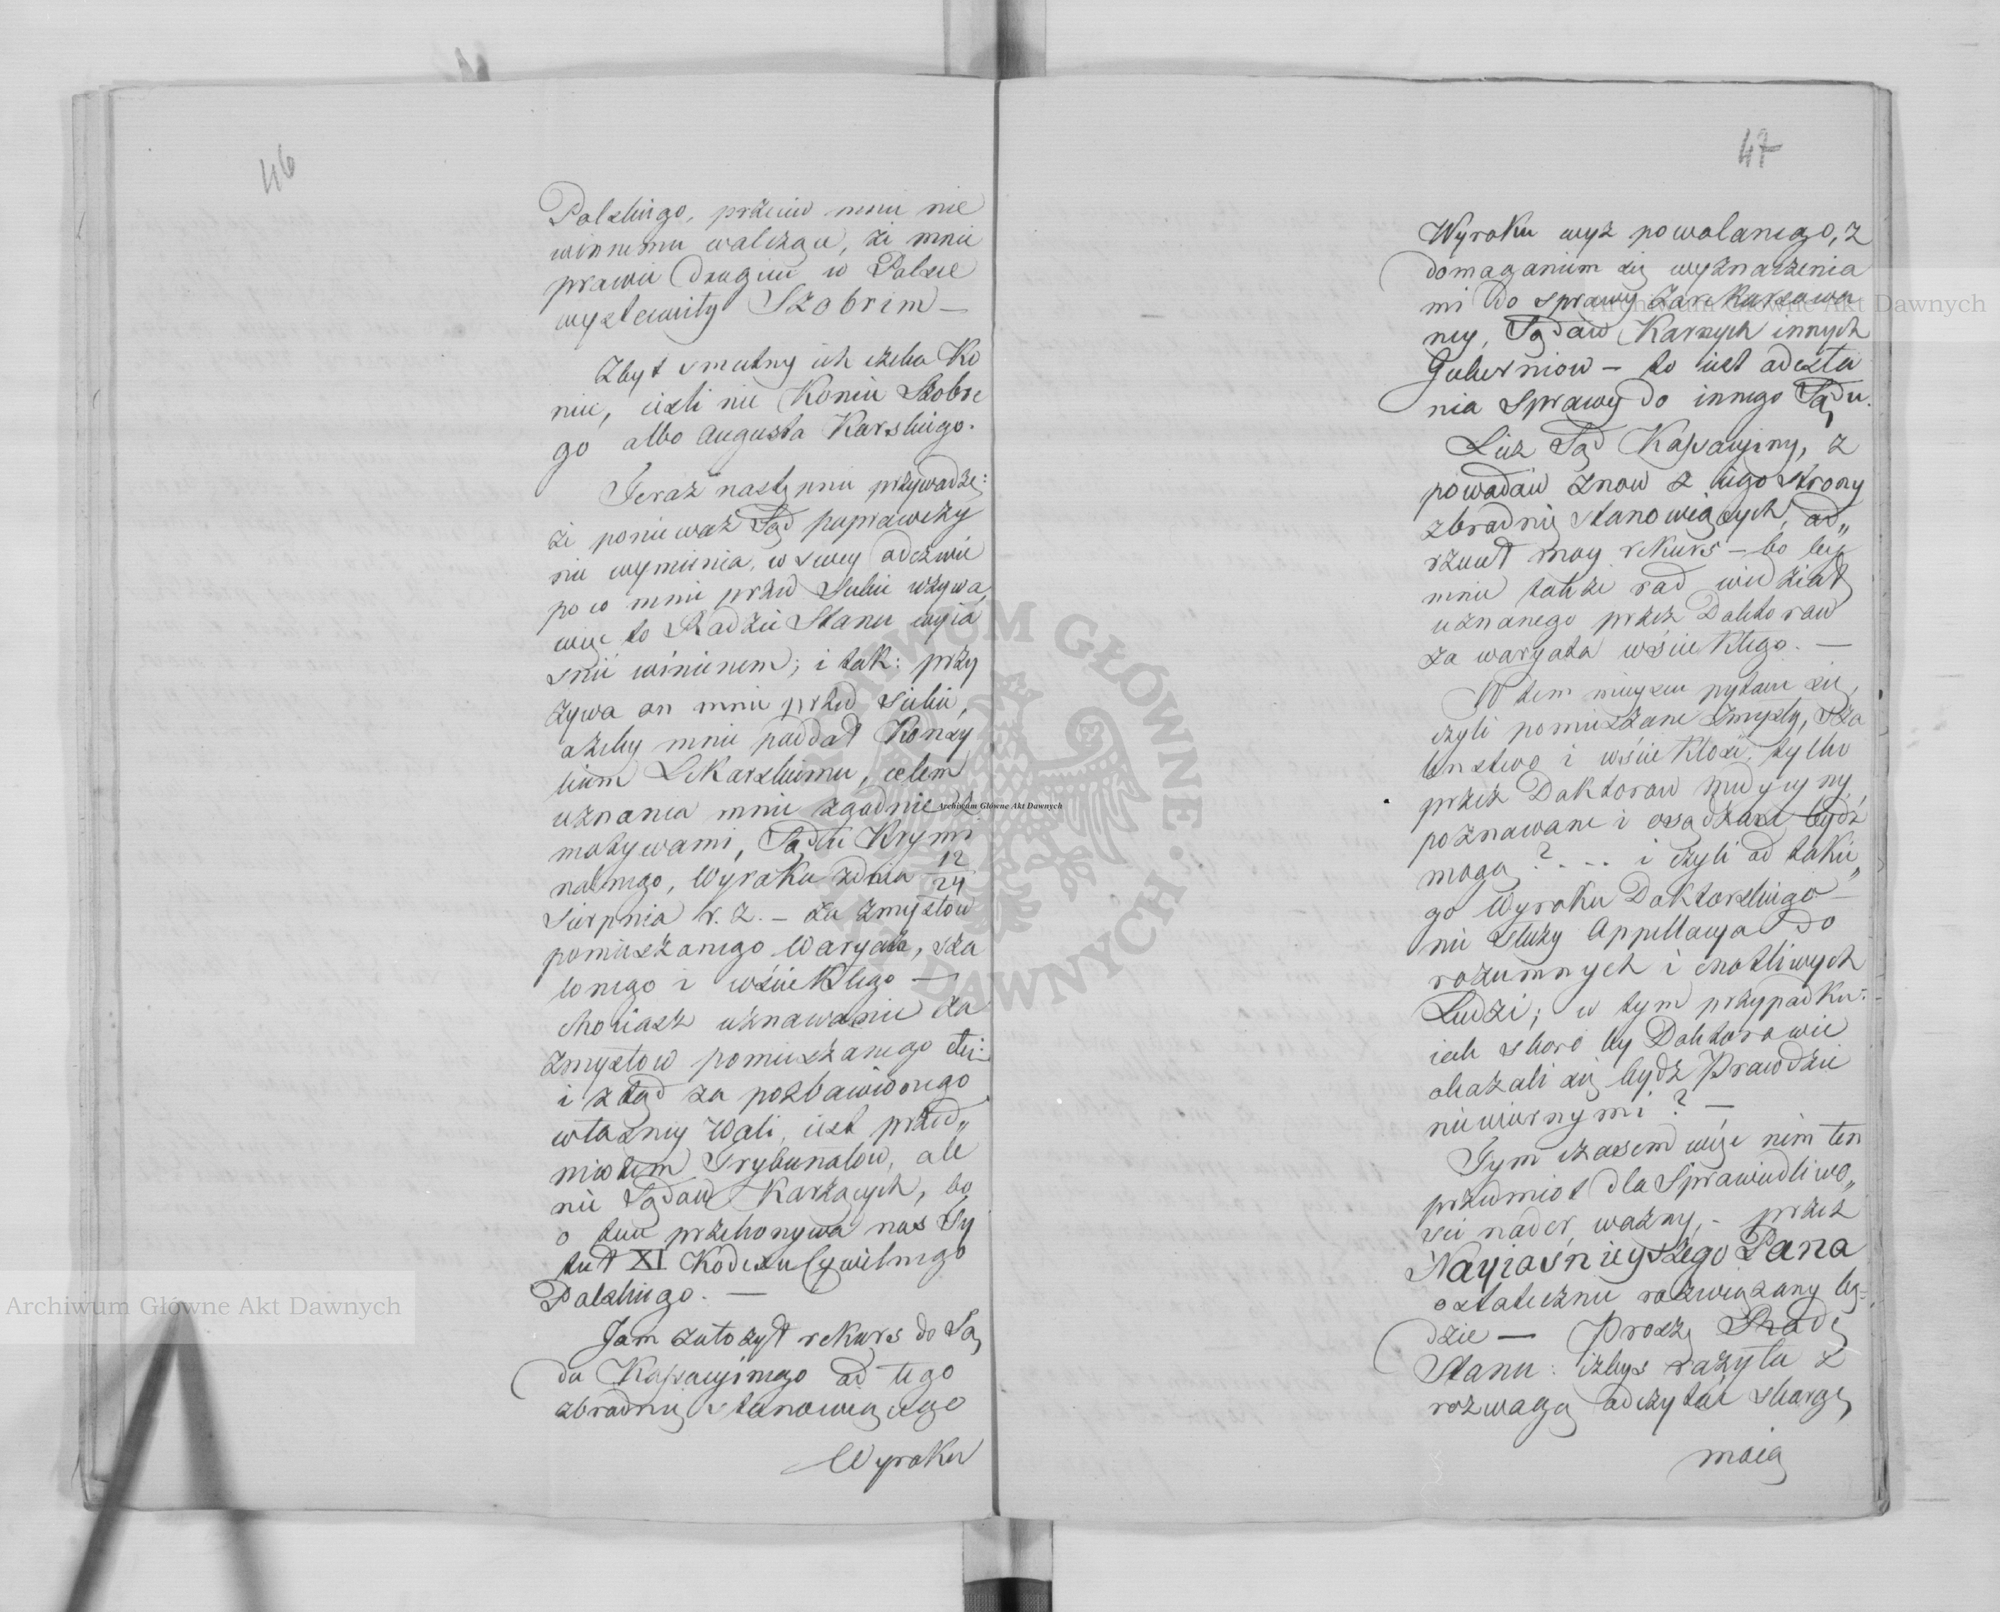 46
Polskiego, przeciw mnie nie
winnemu walcząc, że mnie
prawie drugim w Polsce
Szobrim —
Zbyt smutny ich czeka Ko
niec, ieśli nie Koniec Szobre
go albo Augusta Karskiego.
Teraz następnie przywodzę:
że poniewaz Sąd poprawczy
nie wymienia, w swey odezwie
po co mnie przed Siebie wzywa,
więc to Radzie Stanu wyia
snić winienem; i tak: przy
zywa on mnie przed Siebie,
ażeby mnie poddał Konsy
lium Lekarskiemu, celem
uznania mnie zgodnie z
motywami, Sądu Krymi
nalnego, Wyroku z dnia 12/24
Sierpnia r. z. – za zmysłow
pomieszanego Waryata, sza
lonego i wściekłego —
chociasz uznawanie za
zmysłow pomieszanego
i ztąd za pozbawionego
własney Woli, iest przed„
miotem Trybunałow, ale
nie Sądow Karżących, bo
o tem przekonywa nas Ty
tuł XI Kodexu Cywilnego
Polskiego. —
Jam założył rekurs do Są
du Kassacyinego od tego
zbrodnię stanowiącego
Wyroku
47
Wyroku wyż powołanego, z
domaganiem się wyznaczenia
mi do sprawy
ney, Sądow Karnych innych
Guberniow – to iest odesła
nia Sprawy do innego Sądu.
Lecz Sąd Kassacyiny, z
powodow znow z iego strony
zbrodnię stanowiących, od„
rzucił moy rekurs – bo by
mnie także rad widział
uznanego przez Doktorow
za waryata wściekłego. —
W tem mieyscu pytam się,
czyli pomieszane zmysły, sza
leństwo i wściekłość, tylko
przez Doktorow medycyny
poznawane i osądzane bydź
mogą? . . . i czyli od takie„
go Wyroku Doktorskiego –
nie służy Appellacya Do
rozumnych i cnotliwych
Ludzi; w tym przypadku:
iak skoro by Doktorowie
okazali się bydź Prawdzie
niewiernymi? —
Tym czasem więc nim ten
przedmiot dla Sprawiedliwo„
sci nader ważny, – przez
Nayiaśnieyszego Pana
ostatecznie rozwiązany bę=
dzie — Proszę Radę
Stanu: iżbyś raczyła z
rozwagą odczytać skargę
moią
Archiwum Główne Akt Dawnych
Archiwum Główne Akt Dawnych
Archiwum Główne Akt Dawnych
ARCHIWUM GŁÓWNE AKT DAWNYCH